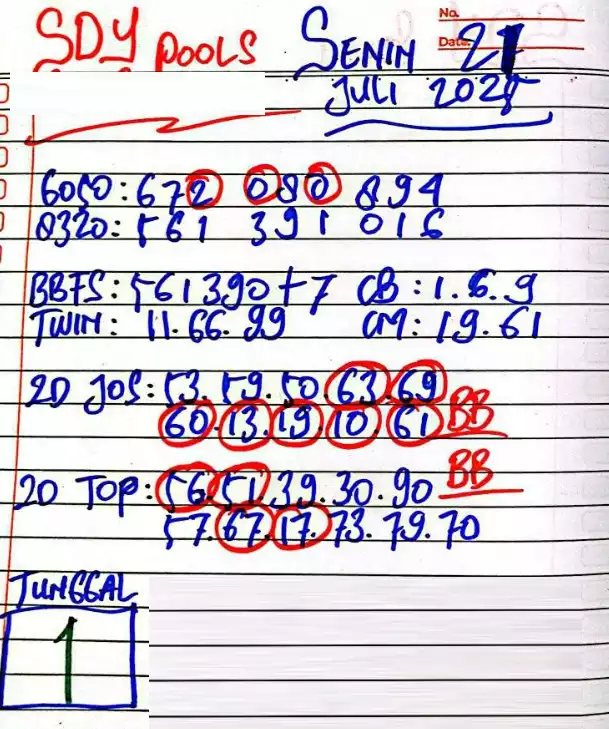 No.
Date.
SDY POOLS SENIN 21
JULI 2025
6050: 672 080 894
8320: 561 391 016
BBFS: 561390+7 CB: 1.6.9
TWIN: 11.66.99 CM: 19.61
2D JOS: 53.59.50.63.69
60.13.19.10 61 BB
2D TOP: 56.51.39.30.90 BB
57.67.17.73.79.70
TUNGGAL
1